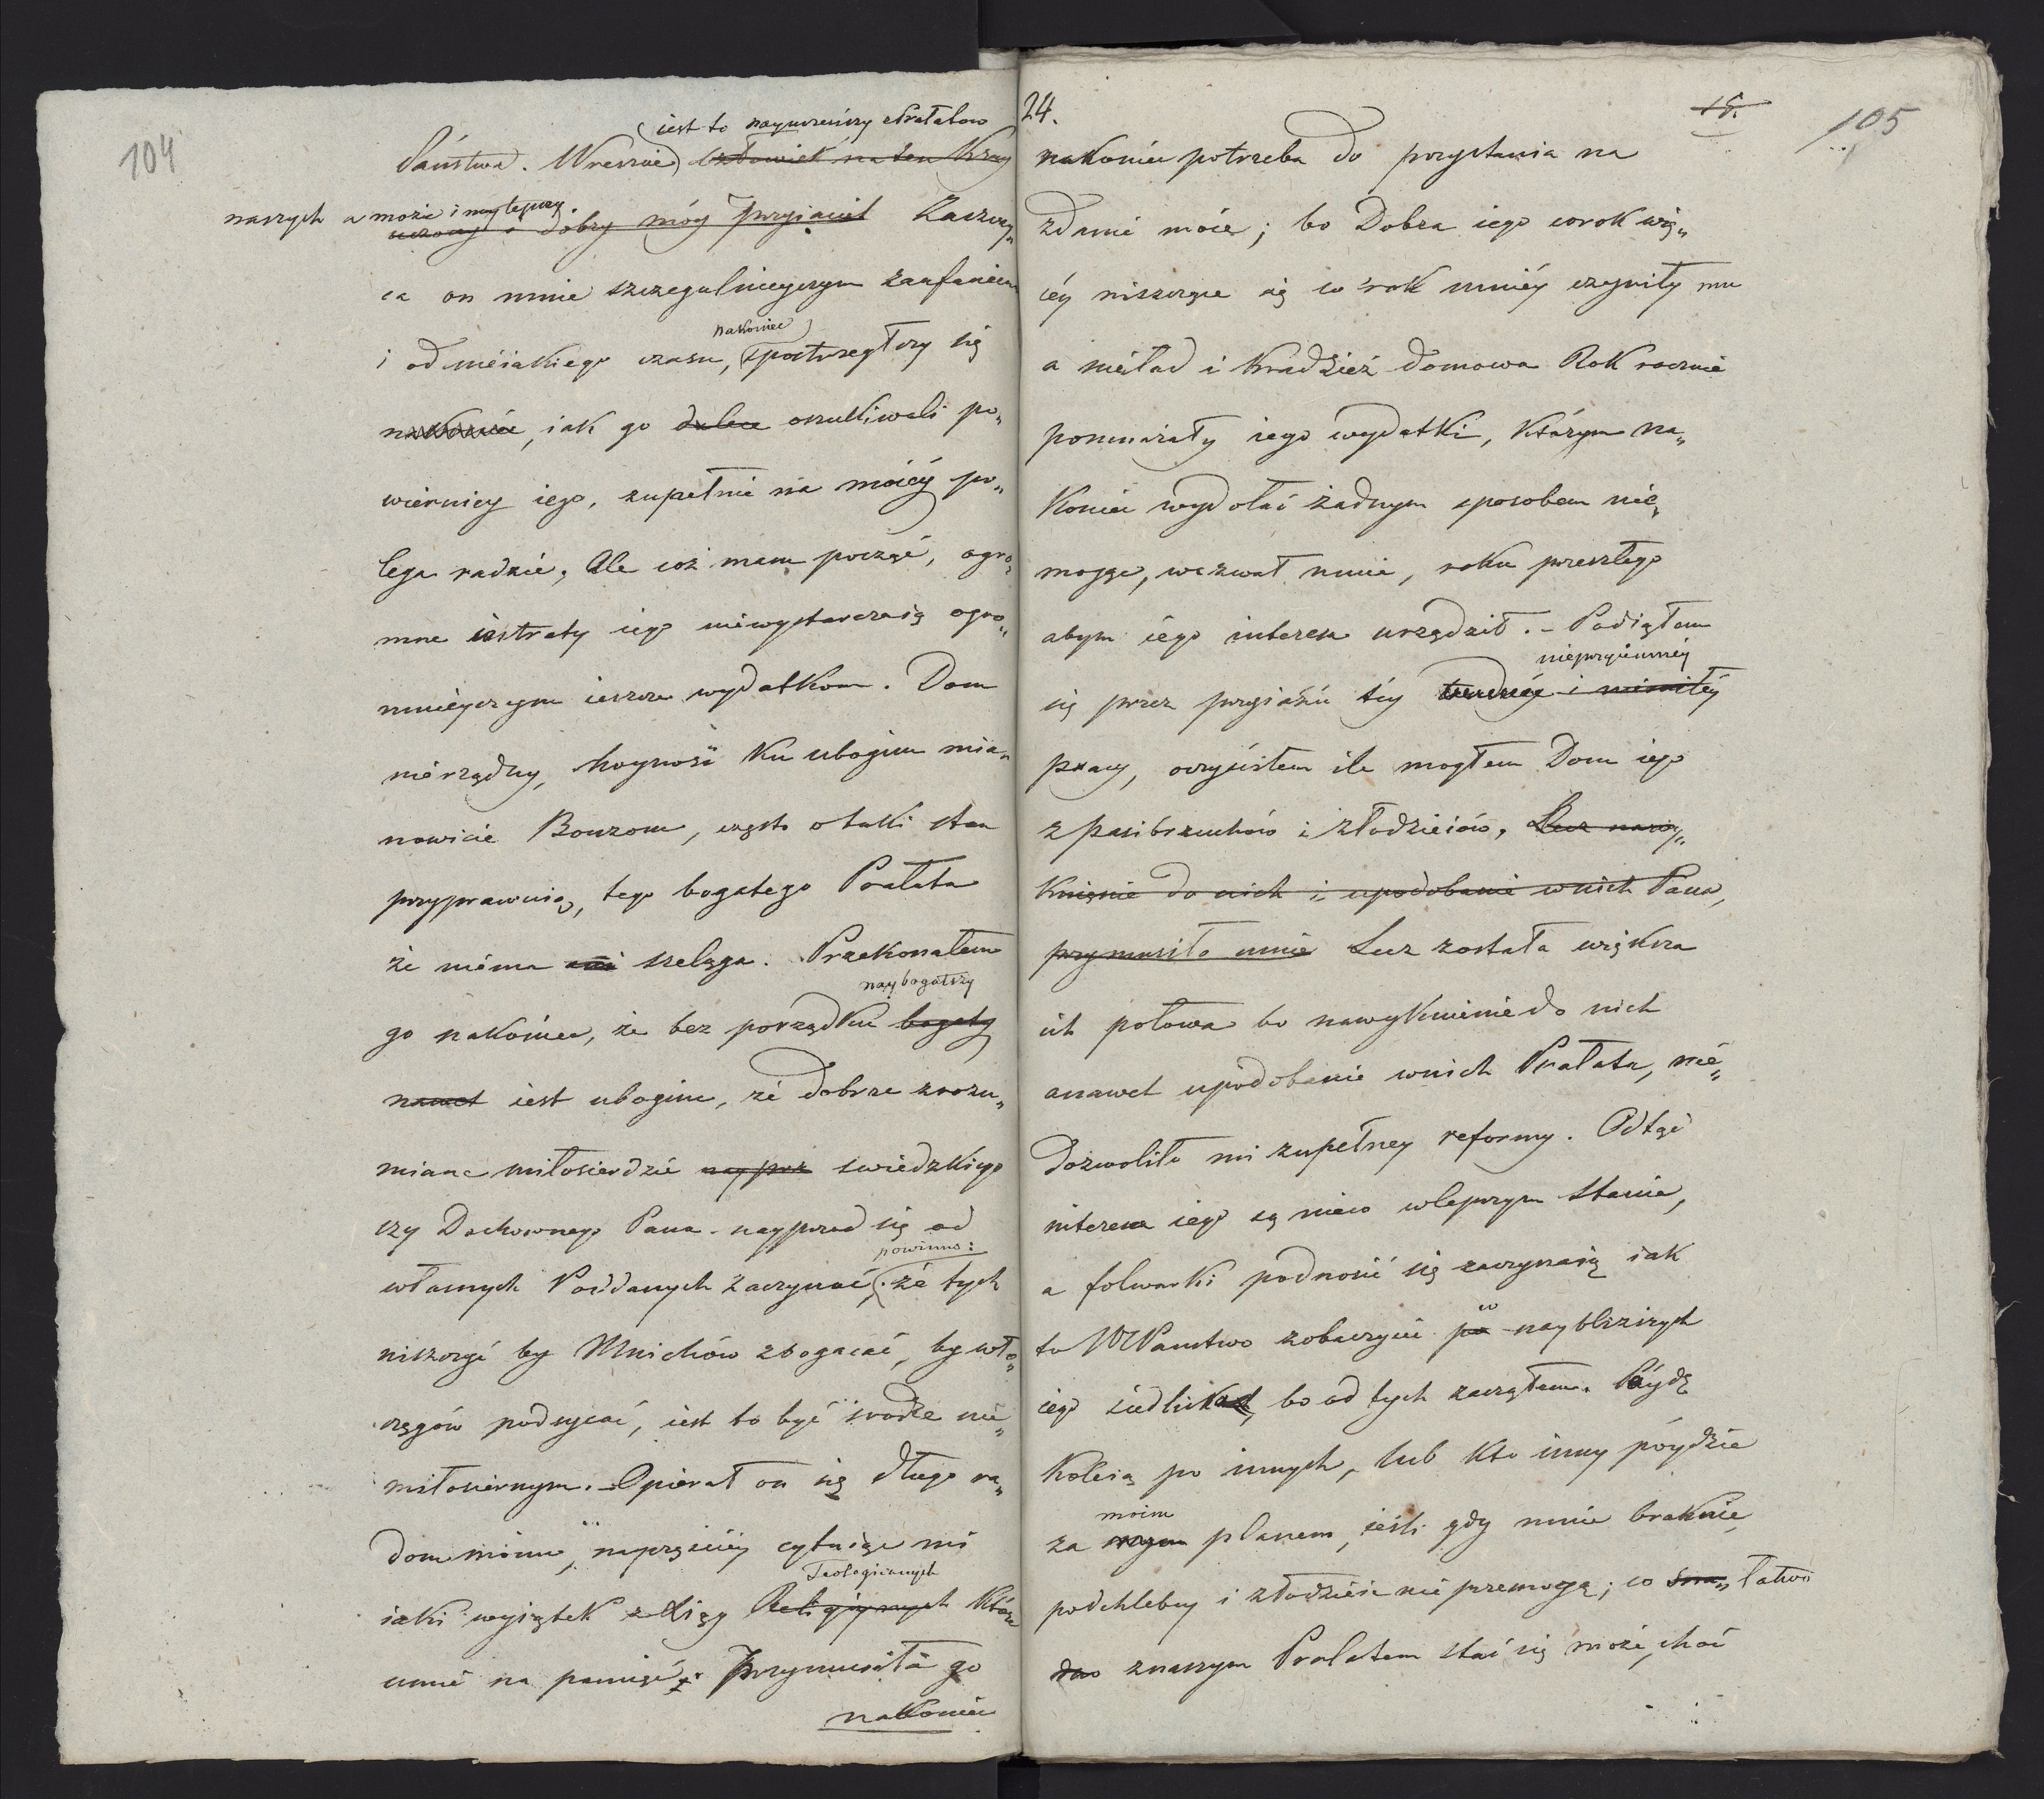 104
(iest to nayuczeńszy z Prałatow
Państwa. Wreście) człowiek na ten Kray
naszych a może i naylepszy.
uczony a dobry móy Przyiaciel Zaszczy„
ca on mnie szczegulnieyszym zaufaniem
nakoniec)
i od nieiakiego czasu, (spostrzegłszy się
nakoniec, iak go dalece oszukiwali po„
wiernicy iego, zupełnie na moiéy po„
lega radzie, Ale coż mam począć, ogro„
mne intraty iego niewystarczaią ogro„
mnieyszym ieszcze wydatkom. Dom
nierządny, hoyność ku ubogim mia„
nowicie Bonzom, często o taki stan
przyprawuią, tego bogatego Prałata
że niéma ani szeląga. Przekonałem
naybogatszy
go nakoniec, że bez porządku bogaty
nawet iest ubogim, że dobrze zrozu„
miane miłosierdzie nayprz swiedzkiego
czy Duchownego Pana nayprzod się od
powinno:
własnych Poddanych zaczynać, (że tych
niszczyć by Mnichów zbogacać, by włó„
częgów podsycać, iest to być srodze nie„
miłosiernym. Opierał on się długo ra„
dom moim, naprzeciéy cytuiąc mi
Teologicznych
iaki wyiątek z Xiąg Religiynych które
umié na pamięć. Przymusiła go
nakoniec
24.
15.
105
nakoniec potrzeba do przystania na
zdanie moie; bo Dobra iego corok wię„
céy niszcząc się co rok mniéy czyniły mu
a nieład i kradzież domowa Rok rocznie
pomnażały iego wydatki, którym na„
koniec wydołać żadnym sposobem nie„
mogąc, wezwał mnie, roku przeszłego
abym iego interesa urządził. - Podiąłem
nieprzyiemnéy
się przez przyiaźń téy trudnéy i niemiłéy
pracy, oczyściłem ile mogłem Dom iego
z pasibrzuchów i złodzieiów, Lecz nawy„
knienie do nich i upodobanie w nich Pana,
przymusiło mnie Lecz została większa
ich połowa bo nawyknienie do nich
a nawet upodobanie w nich Prałata, nie„
dozwoliło mi zupełney reformy. Odtąd
interesa iego są nieco w lepszym stanie,
a folwarki podnosić się zaczynaią iak
w
to WPaństwo zobaczycie po naybliższych
iego siedliskach, bo od tych zacząłem. Póydę
koleią po innych, lub kto inny póydzie
moim
za mym planem, ieśli gdy mnie braknie
podchlebcy i złodzieie nie przemogą; co sna„ łatwo
dno z naszym Prałatem stać się może, choć